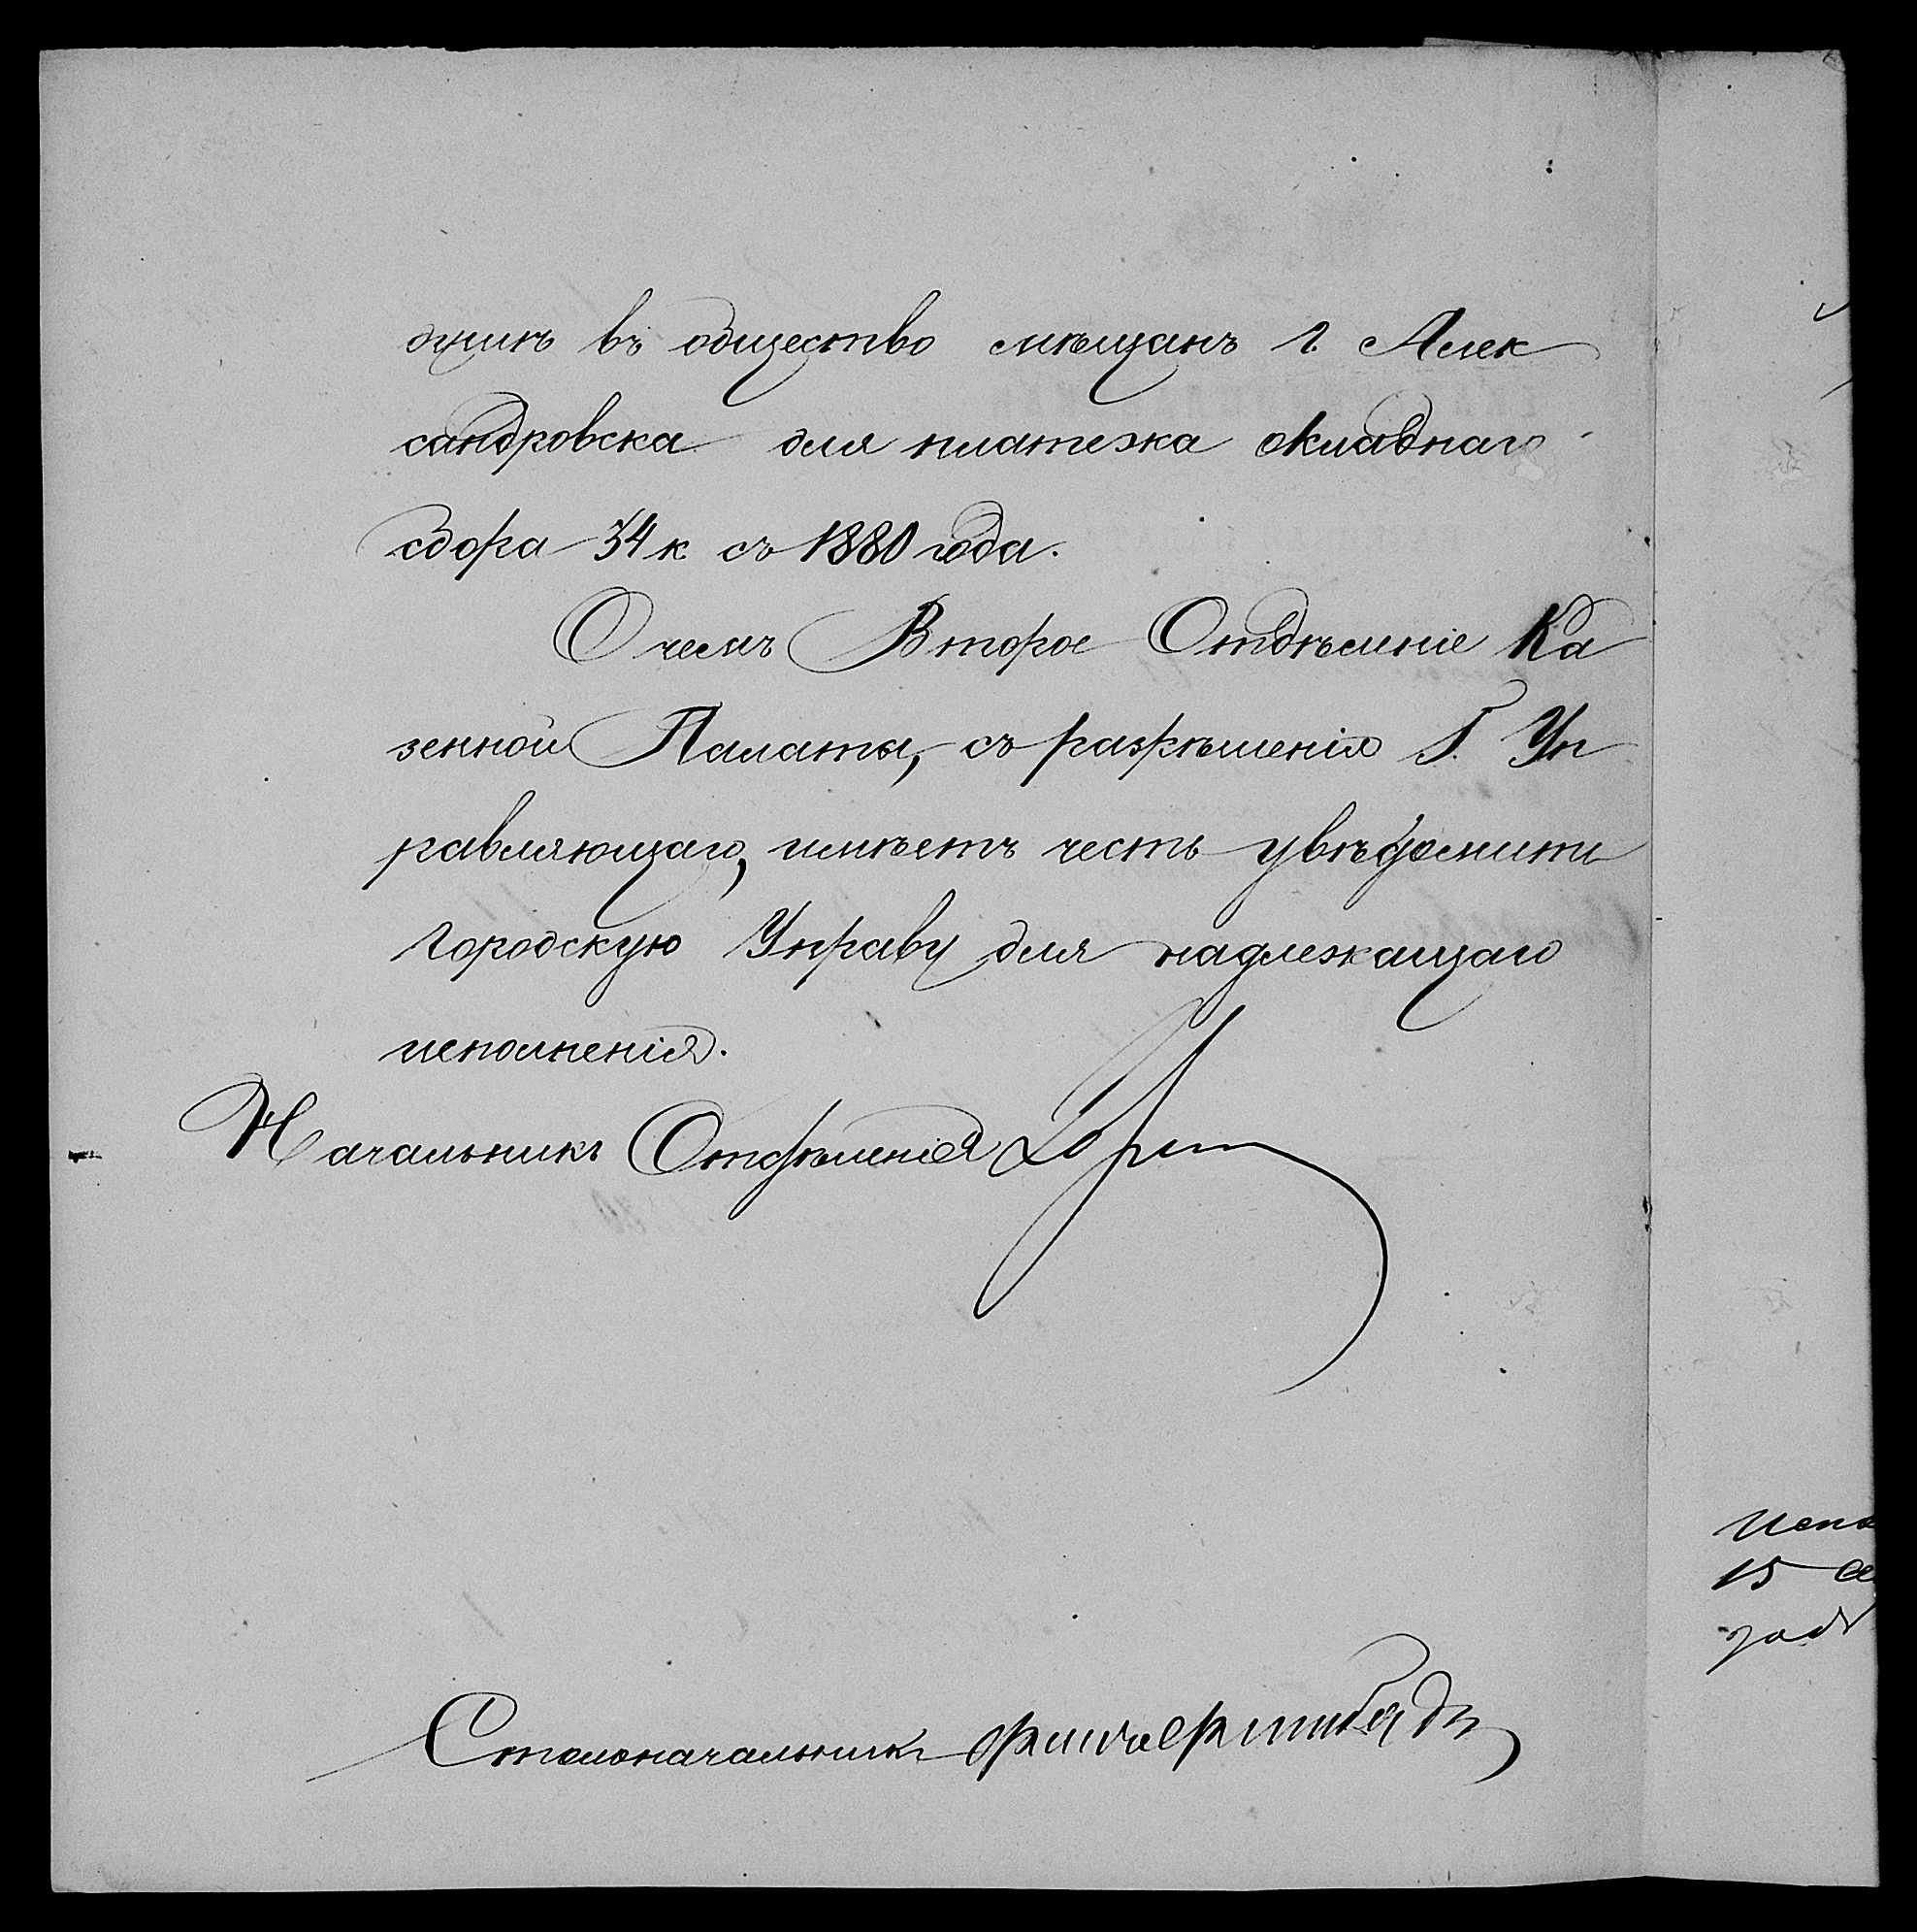 душѣ въ общество мѣщанъ г. Алек
сандровска для платежа окладнаго
сбора 34 к съ 1880 года.
О чемъ Второе Отдѣленіе Ка
зенной Палаты, съ разрѣшенія Г. Уп
равляющаго, имѣетъ честь увѣдомить
Городскую Управу для надлежащаго
исполненія.
Начальникъ Отдѣленія
Столоначальникъ
Испо
15